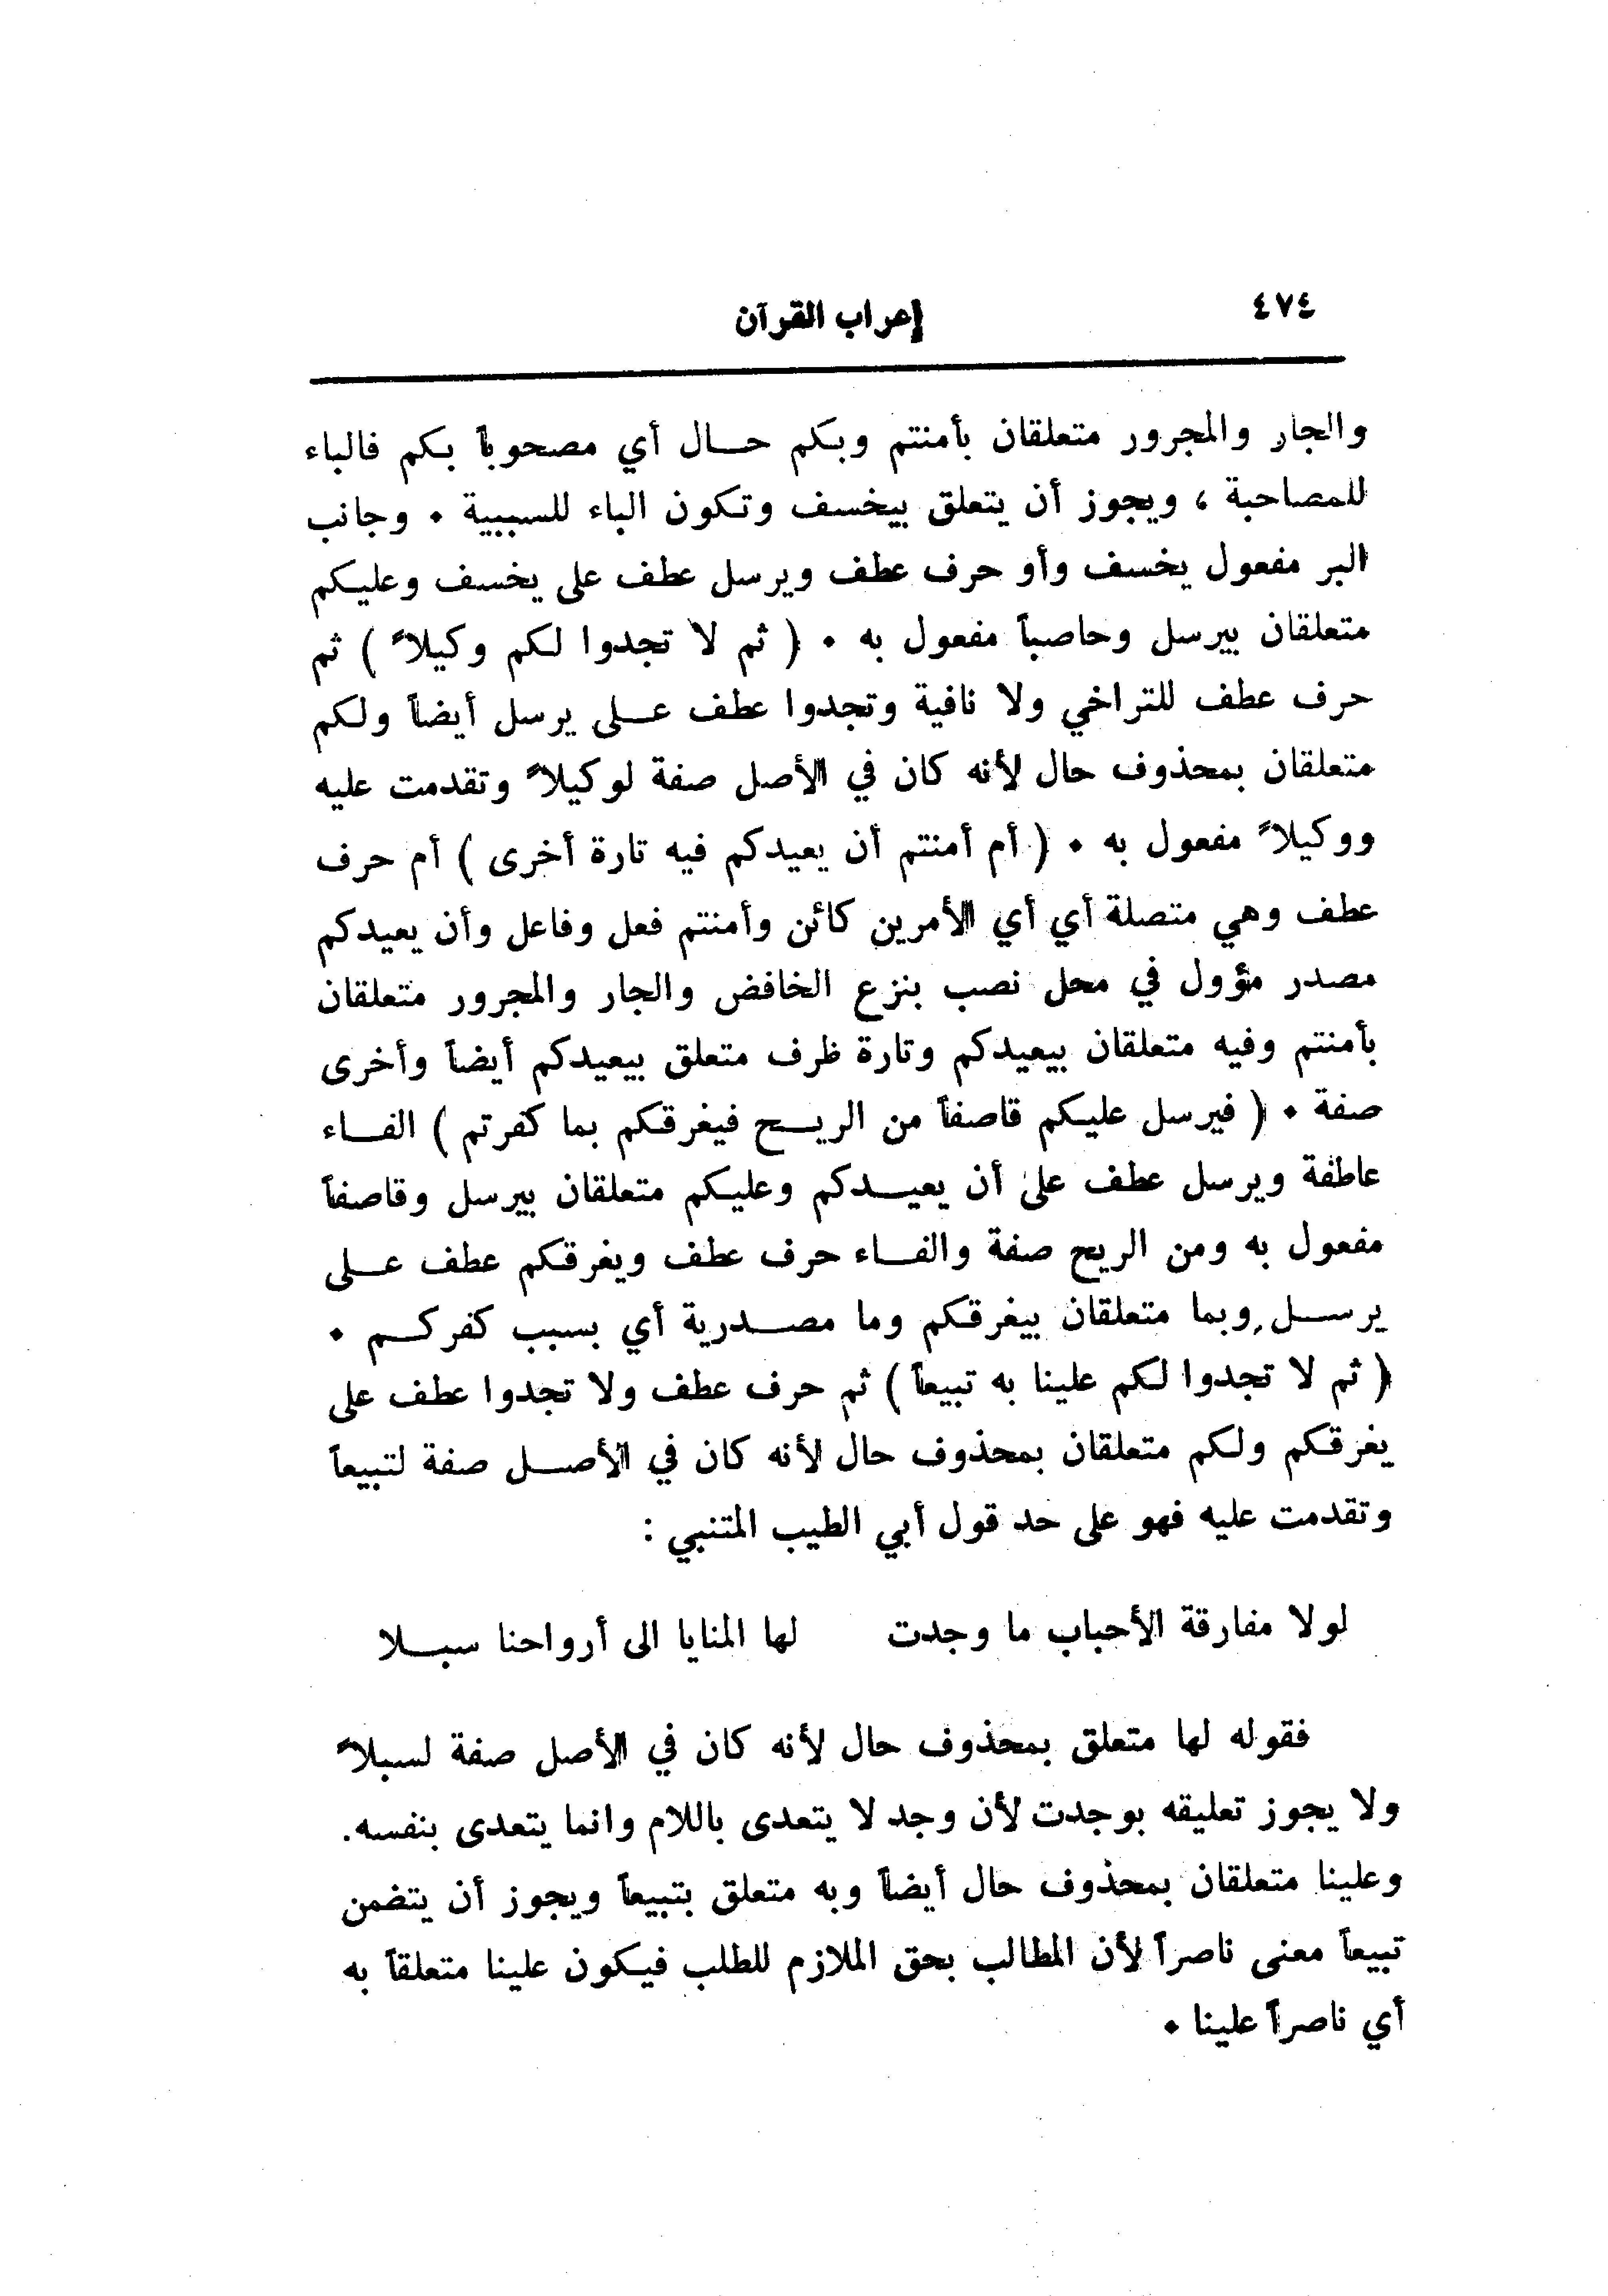 ٤٧٤
إعراب القرآن
والجار والمجرور متعلقان بأمنتم وبكم حال أي مصحوباً بكم فالباء
للمصاحبة ، ويجوز أن يتعلق بيخسف وتكون الباء للسببية . وجانب
البر مفعول يخسف وأو حرف عطف ويرسل عطف على يخسف وعليكم
متعلقان بيرسل وحاصباً مفعول به . ( ثم لا تجدوا لكم وكيلاً ) ثم
حرف عطف للتراخي ولا نافية وتجدوا عطف على يرسل أيضاً ولكم
متعلقان بمحذوف حال لأنه كان في الأصل صفة لوكيلاً وتقدمت عليه
ووكيلاً مفعول به . ( أم أمنتم أن يعيدكم فيه تارة أخرى ) أم حرف
عطف وهي متصلة أي أي الأمرين كائن وأمنتم فعل وفاعل وأن يعيدكم
مصدر مؤول في محل نصب بنزع الخافض والجار والمجرور متعلقان
بأمنتم وفيه متعلقان بيعيدكم وتارة ظرف متعلق بيعيدكم أيضاً وأخرى
صفة . ( فيرسل عليكم قاصفاً من الريح فيغرقكم بما كفرتم ) الفاء
عاطفة ويرسل عطف على أن يعيدكم وعليكم متعلقان بيرسل وقاصفاً
مفعول به ومن الريح صفة والفاء حرف عطف ويغرقكم عطف على
يرسل وبما متعلقان بيغرقكم وما مصدرية أي بسبب كفركم .
( ثم لا تجدوا لكم علينا به تبيعاً ) ثم حرف عطف ولا تجدوا عطف على
يغرقكم ولكم متعلقان بمحذوف حال لأنه كان في الأصل صفة لتبيعاً
وتقدمت عليه فهو على حد قول أبي الطيب المتنبي :
لولا مفارقة الأحباب ما وجدت لها المنايا الى أرواحنا سبلا
فقوله لها متعلق بمحذوف حال لأنه كان في الأصل صفة لسبلاً
ولا يجوز تعليقه بوجدت لأن وجد لا يتعدى باللام وانما يتعدى بنفسه.
وعلينا متعلقان بمحذوف حال أيضاً وبه متعلق بتبيعاً ويجوز أن يتضمن
تبيعاً معنى ناصراً لأن المطالب بحق الملازم للطلب فيكون علينا متعلقاً به
أي ناصراً علينا .